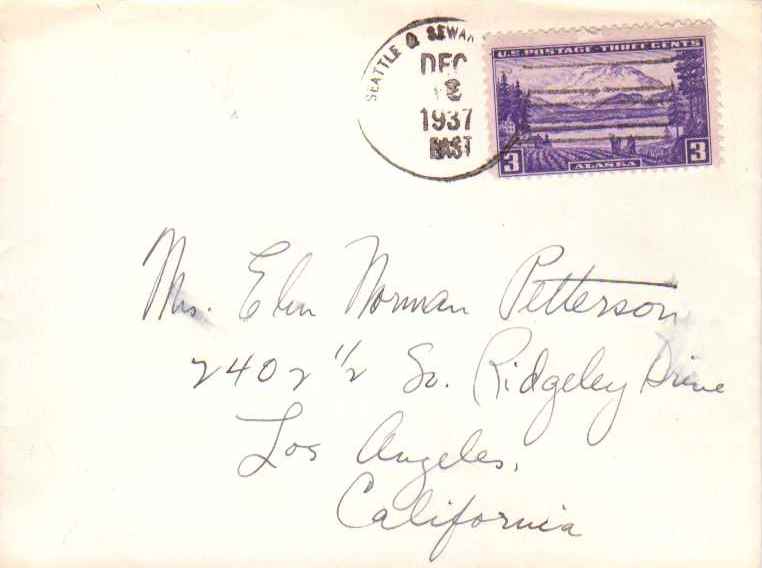 SEATTLE & SEWA
DEC
1937
EAST
U.S. POSTAGE - THREE CENTS
3 ALASKA 3
Mrs. Eben Norman Petterson
2402 1/2 So. Ridgeley Drive
Los Angeles,
California